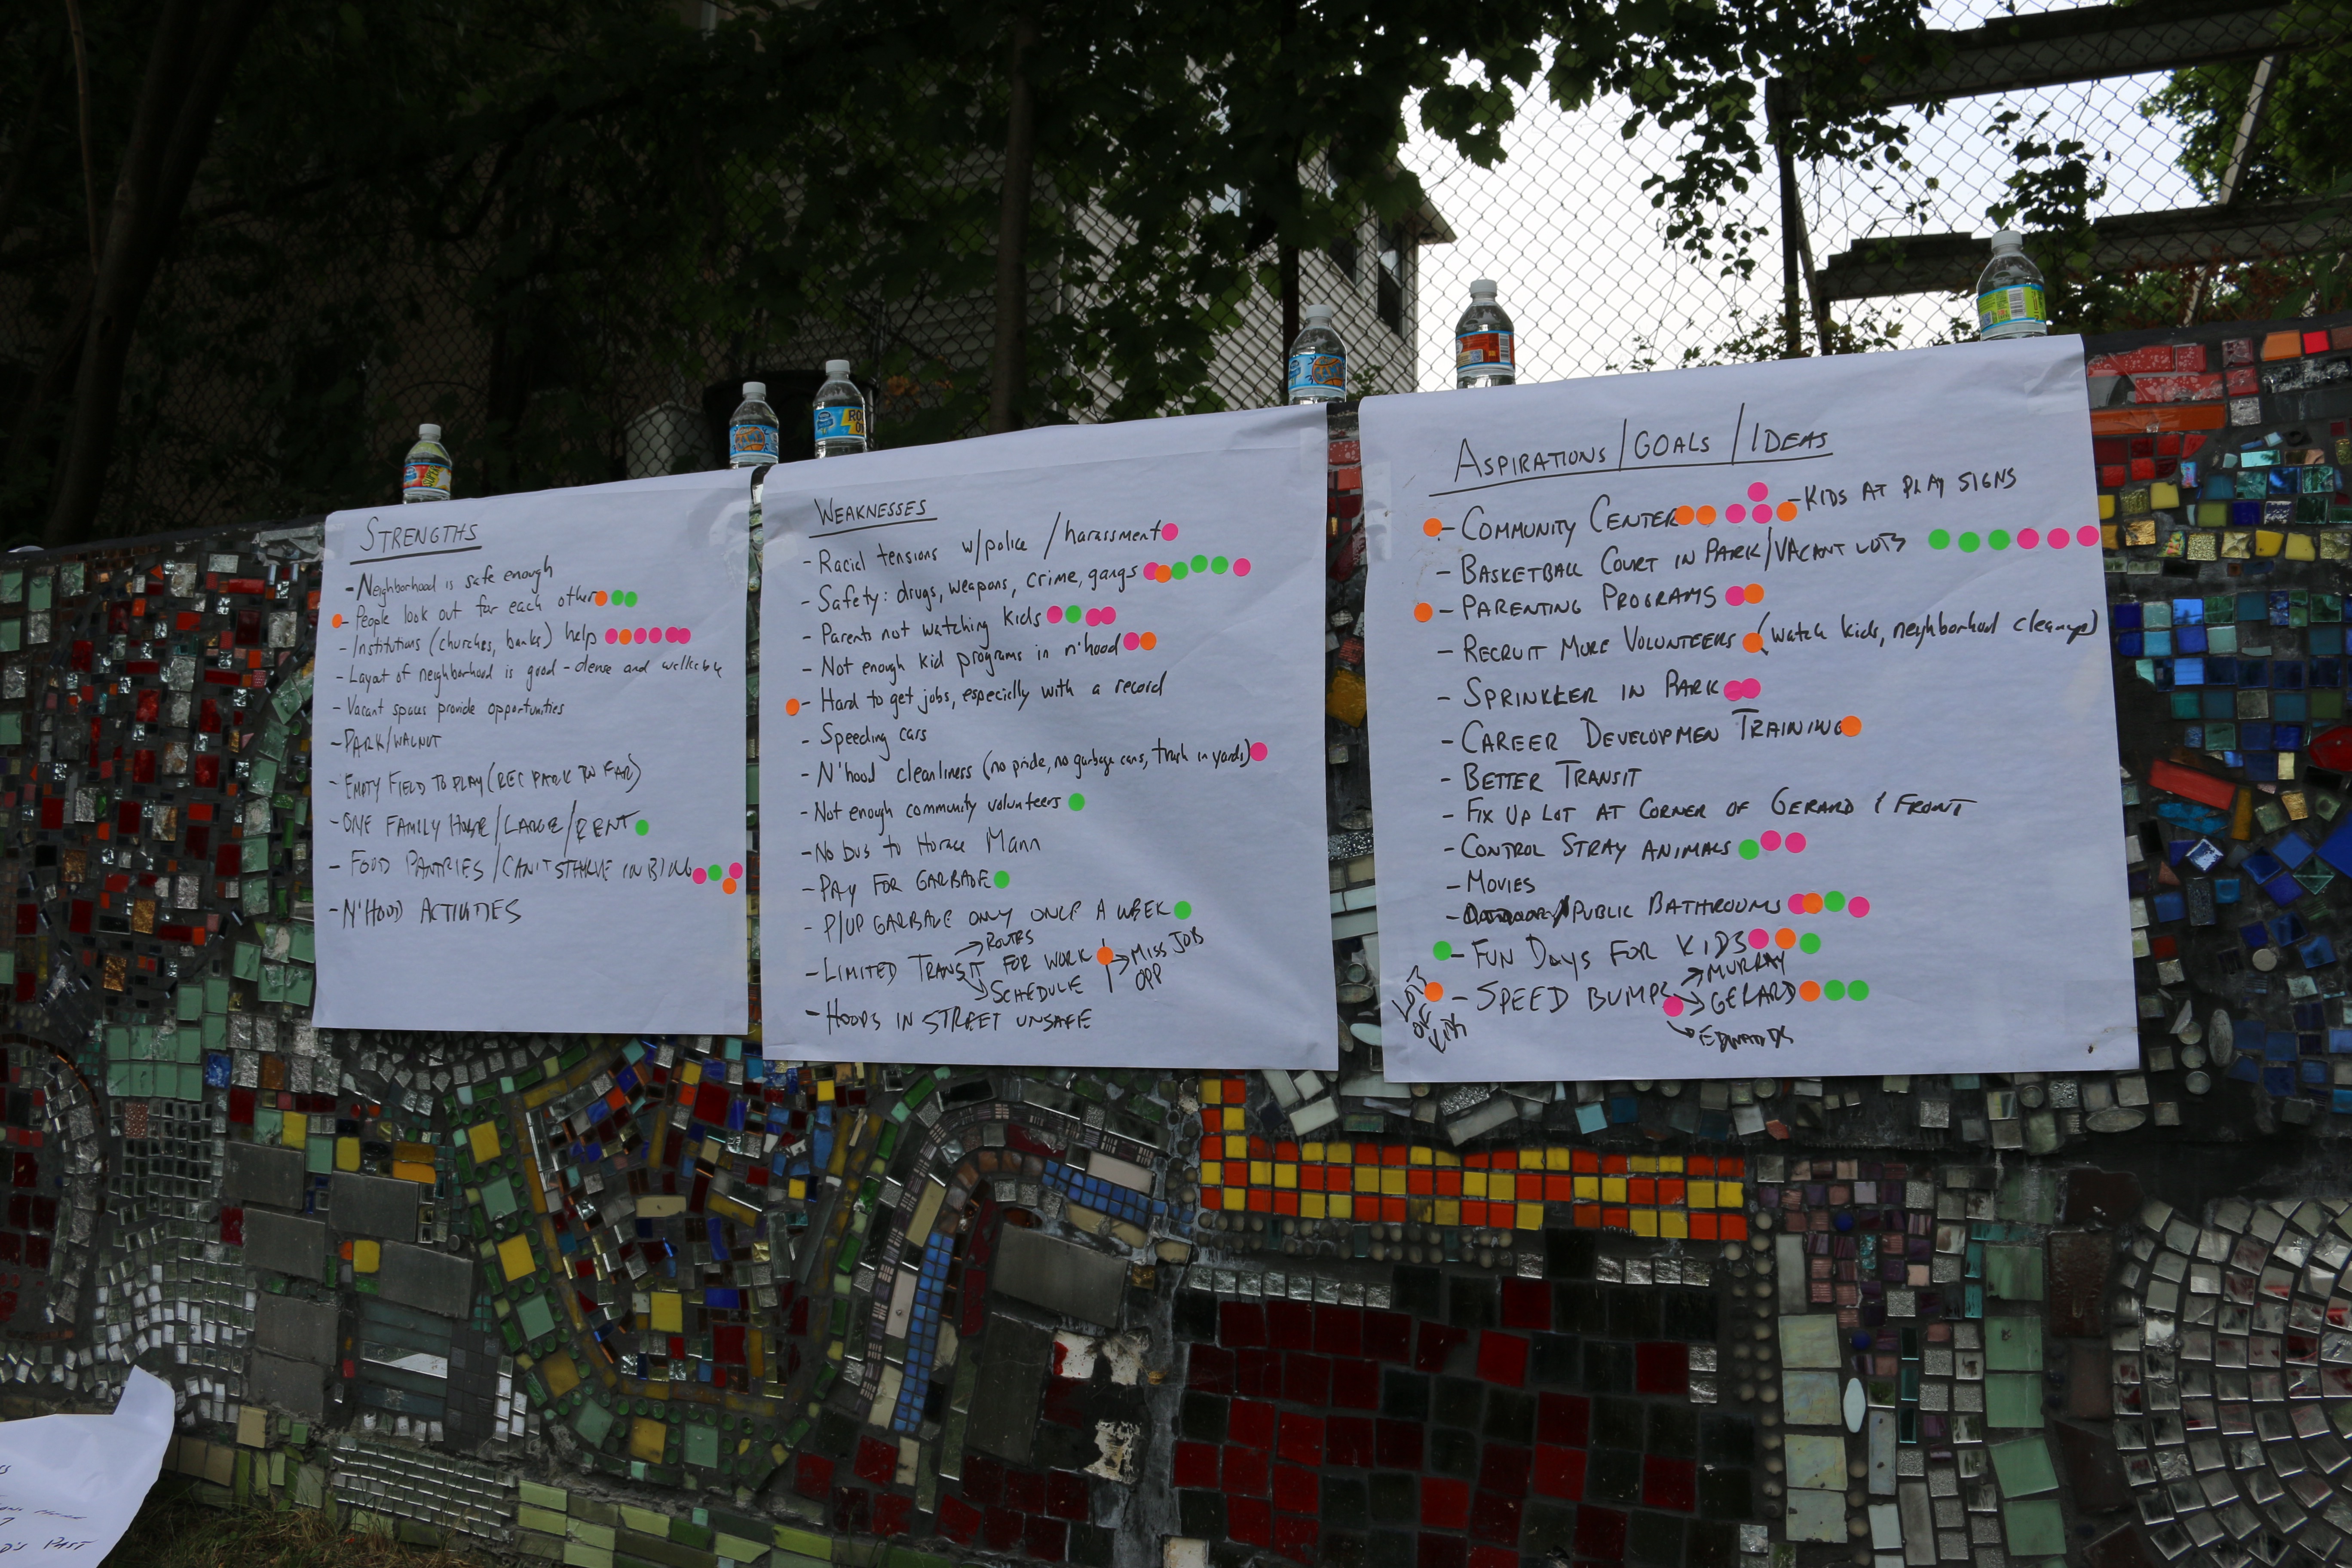 STRENGTHS
- Neighborhood is safe enough
- People look out for each other
- Institutions (churches, banks) help
- Layout of neighborhood is good - dense and walkable
- Vacant spaces provide opportunities
- PARK/WALNUT
- EMPTY FIELD TO PLAY (REC PARK TO FAR)
- ONE FAMILY HOUSE/LARGE/RENT
- FOOD PANTRIES / CAN'T STARVE IN BING
- N'HOOD ACTIVITIES
WEAKNESSES
- Racial tensions w/police / harassment
- Safety: drugs, weapons, crime, gangs
- Parents not watching kids
- Not enough kid programs in n'hood
- Hard to get jobs, especially with a record
- Speeding cars
- N'hood cleanliness (no pride, no garbage cans, trash in yards)
- Not enough community volunteers
- No bus to Horace Mann
- PAY FOR GARBAGE
- P/UP GARBAGE ONLY ONCE A WEEK
→ ROUTES
- LIMITED TRANSIT FOR WORK → MISS JOB
OPP
→ SCHEDULE
- HOOPS IN STREET UNSAFE
ASPIRATIONS/GOALS/IDEAS
- COMMUNITY CENTER - KIDS AT PLAY SIGNS
- BASKETBALL COURT IN PARK/VACANT LOTS
- PARENTING PROGRAMS
- RECRUIT MORE VOLUNTEERS (watch kids, neighborhood cleanups)
- SPRINKLER IN PARK
- CAREER DEVELOPMEN TRAINING
- BETTER TRANSIT
- FIX UP LOT AT CORNER OF GERARD & FRONT
- CONTROL STRAY ANIMALS
- MOVIES
- PUBLIC BATHROOMS
- FUN DAYS FOR KIDS
→ MURRAY
- SPEED BUMPS → GERARD
→ EDWARDS
LOTS
OF
KIDS
D'S PAST